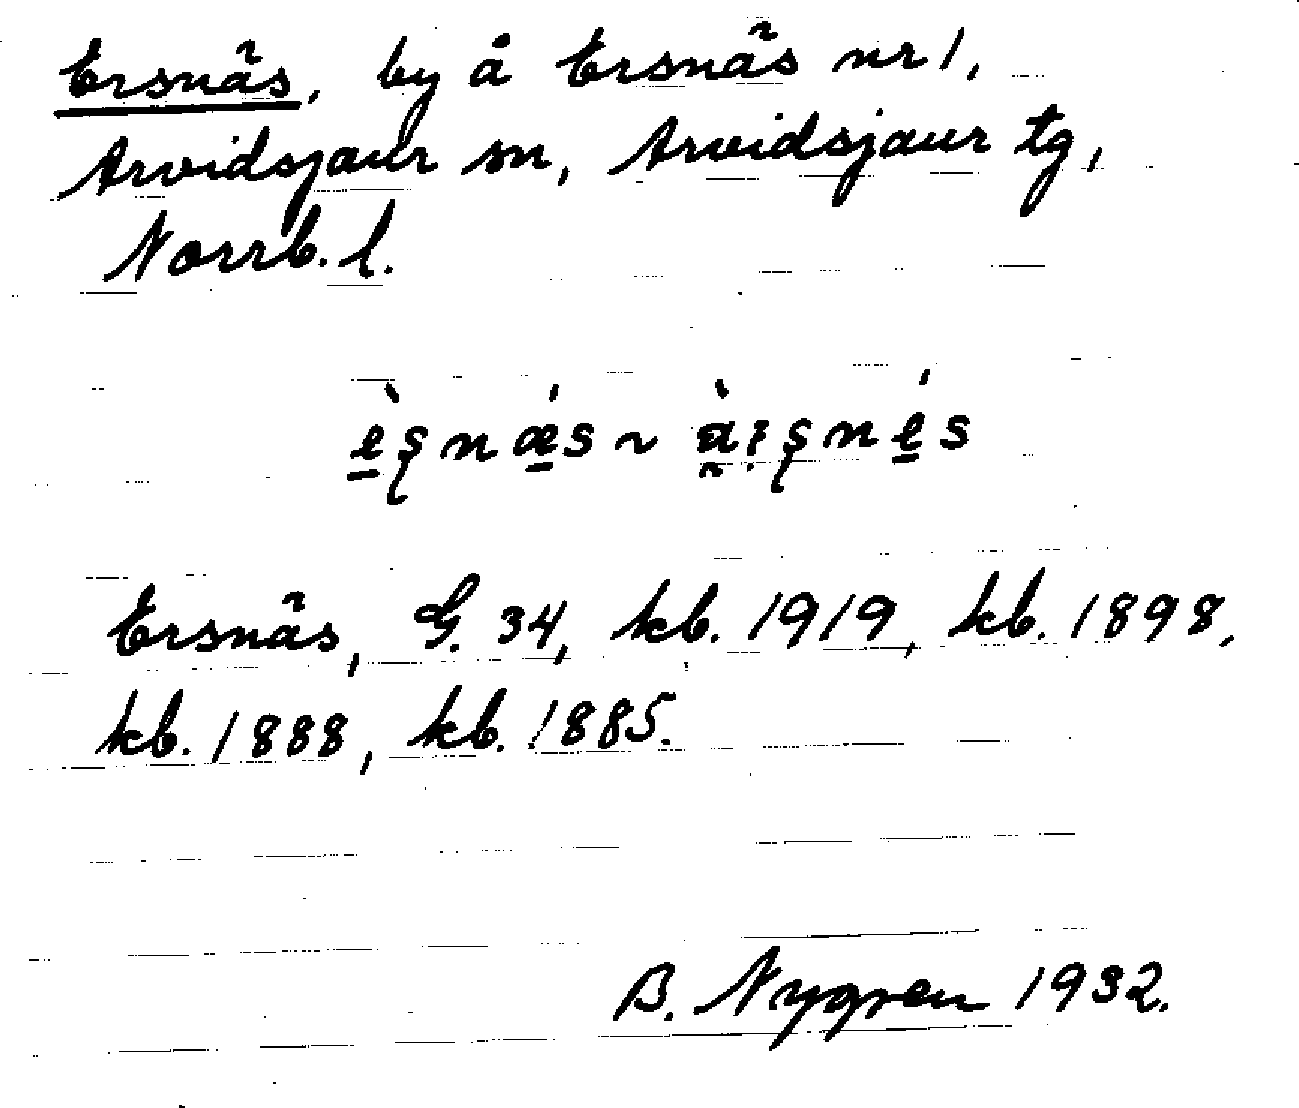 Ersnäs, by å Ersnäs nr 1,
Arvidsjaur sn, Arvidsjaur tg,
Norrb. l.
è̱ʂnǽ̱s ~ à̰ṛʂné̱s
Ersnäs, G. 34, kb. 1919, kb. 1898,
kb. 1888, kb. 1885.
B. Nygren 1932.